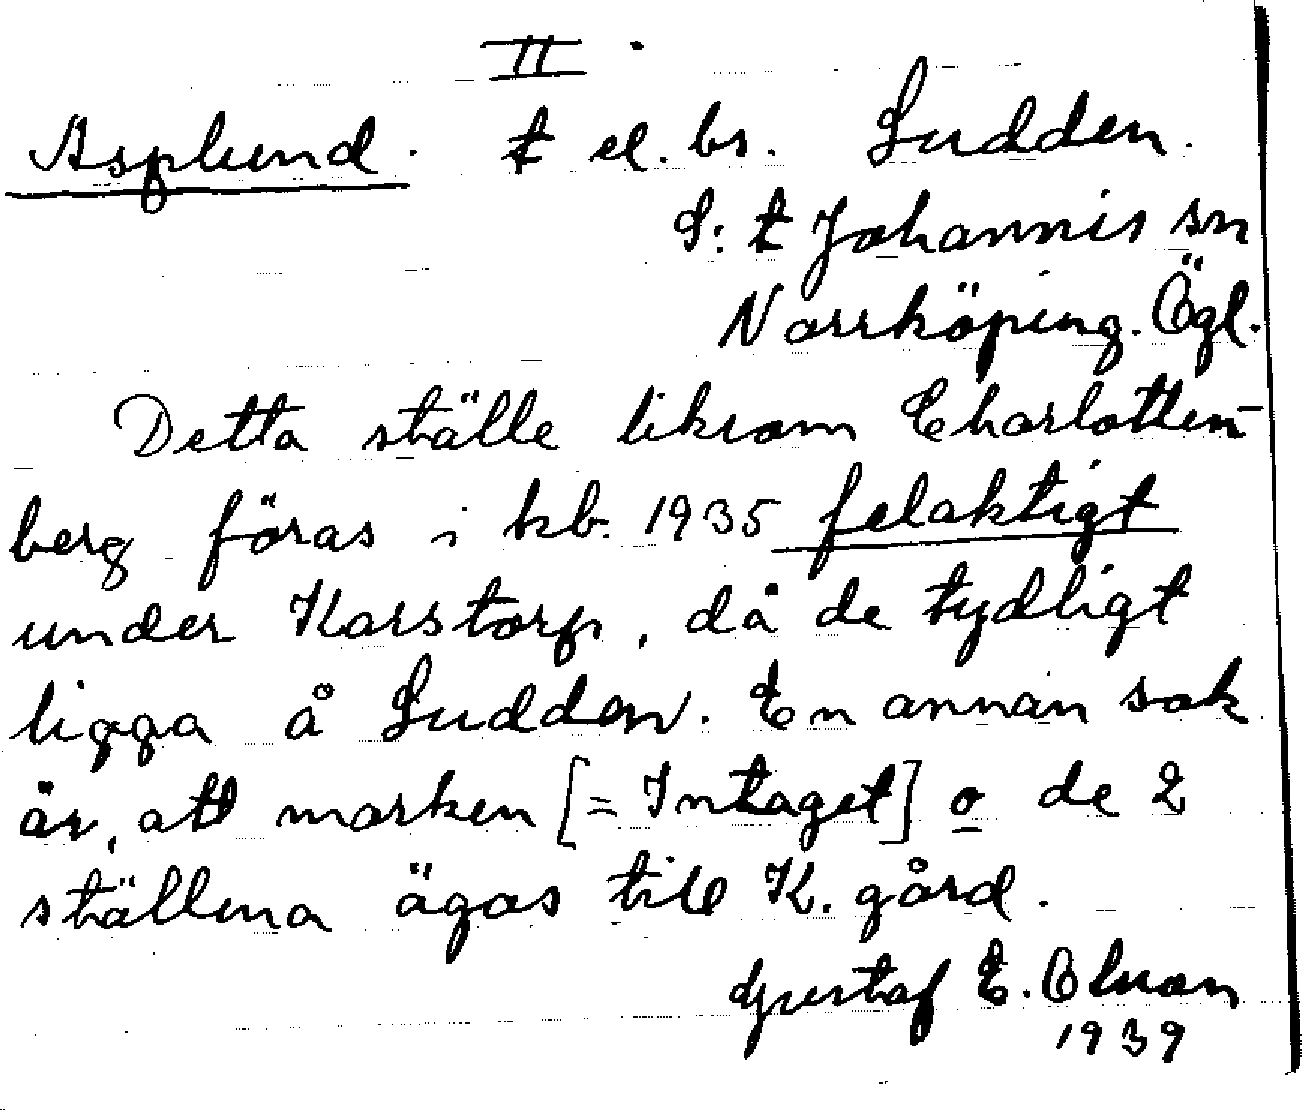 II.
Asplund. t el. bs. Ludden.
S:t Johannis sn
Norrköping. Ögl.
Detta ställe liksom Charlotten-
berg föras i kb. 1935 felaktigt
under Karstorp, då de tydligt
ligga å Ludden. En annan sak
är, att marken [= Intaget] o de 2
ställena ägas till K. gård.
Gustaf E.
1939